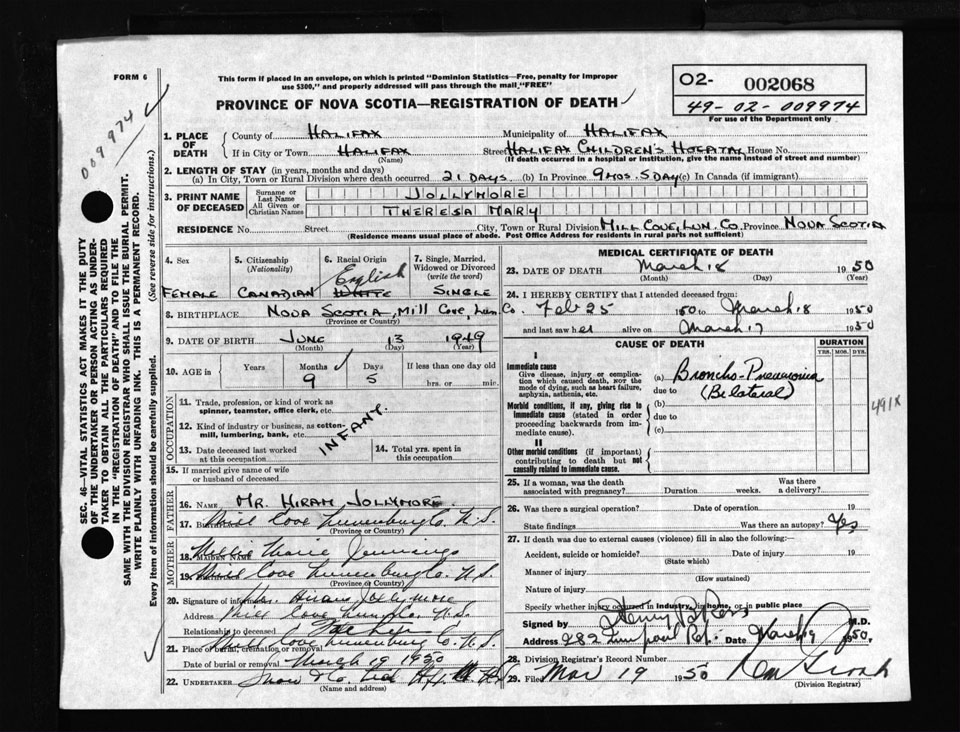 FORM 6
This form if placed in an envelope, on which is printed "Dominion Statistics—Free, penalty for improper
use $300," and properly addressed will pass through the mail "FREE"
PROVINCE OF NOVA SCOTIA—REGISTRATION OF DEATH
02- 002068
49-02-009974
For use of the Department only
009974
SEC. 46—VITAL STATISTICS ACT MAKES IT THE DUTY
OF THE UNDERTAKER OR PERSON ACTING AS UNDER-
TAKER TO OBTAIN ALL THE PARTICULARS REQUIRED
IN THE "REGISTRATION OF DEATH" AND TO FILE THE
SAME WITH THE DIVISION REGISTRAR WHO SHALL ISSUE THE BURIAL PERMIT.
WRITE PLAINLY WITH UNFADING INK. THIS IS A PERMANENT RECORD.
Every item of information should be carefully supplied. (See reverse side for instructions.)
1. PLACE OF DEATH
County of HALIFAX Municipality of HALIFAX
If in City or Town HALIFAX Street HALIFAX CHILDREN'S HOSPITAL House No.
(Name) (If death occurred in a hospital or institution, give the name instead of street and number)
2. LENGTH OF STAY (in years, months and days)
(a) In City, Town or Rural Division where death occurred 21 DAYS (b) In Province 9 MOS. 5 DAY (c) In Canada (if immigrant)
3. PRINT NAME OF DECEASED
Surname or Last Name JOLLYMORE
All Given or Christian Names THERESA MARY
RESIDENCE No. Street City, Town or Rural Division MILL COVE, LUN. CO. Province NOVA SCOTIA
(Residence means usual place of abode. Post Office Address for residents in rural parts not sufficient)
4. Sex 5. Citizenship (Nationality) 6. Racial Origin 7. Single, Married, Widowed or Divorced (write the word)
FEMALE CANADIAN English WHITE SINGLE
8. BIRTHPLACE NOVA SCOTIA, Mill Cove, Lun. Co.
(Province or Country)
9. DATE OF BIRTH JUNE 13 1949
(Month) (Day) (Year)
10. AGE in Years Months Days If less than one day old
9 5 hrs. or min.
OCCUPATION
11. Trade, profession, or kind of work as
spinner, teamster, office clerk, etc.
12. Kind of industry or business, as cotton-
mill, lumbering, bank, etc.
INFANT.
13. Date deceased last worked at this occupation
14. Total yrs. spent in this occupation
15. If married give name of wife or husband of deceased
FATHER
16. NAME MR. HIRAM JOLLYMORE.
17. BIRTHPLACE Mill Cove Lunenburg Co. N.S.
(Province or Country)
MOTHER
18. MAIDEN NAME Marie Jennings
19. Mill Cove Lunenburg Co. N.S.
(Province or Country)
20. Signature of informant Mr. Hiram Jollymore
Address Mill Cove Lun. Co. N.S.
Relationship to deceased Father
21. Place of burial, cremation or removal Mill Cove Lunenburg Co. N.S.
Date of burial or removal March 19 1950
22. UNDERTAKER Snow & Co. Ltd
(Name and address)
MEDICAL CERTIFICATE OF DEATH
23. DATE OF DEATH March 18 1950
(Month) (Day) (Year)
24. I HEREBY CERTIFY that I attended deceased from:
Feb 25 1950 to March 18 1950
and last saw her alive on March 17 1950
CAUSE OF DEATH
DURATION
YRS. MOS. DYS.
I
Immediate cause
Give disease, injury or complication which caused death, not the mode of dying, such as heart failure, asphyxia, asthenia, etc.
(a) Broncho-Pneumonia
due to (Bilateral)
491X
Morbid conditions, if any, giving rise to immediate cause (stated in order proceeding backwards from immediate cause).
(b)
due to
(c)
II
Other morbid conditions (if important) contributing to death but not causally related to immediate cause.
25. If a woman, was the death associated with pregnancy? Duration weeks. Was there a delivery?
26. Was there a surgical operation? Date of operation 19
State findings Was there an autopsy? Yes
27. If death was due to external causes (violence) fill in also the following:—
Accident, suicide or homicide? Date of injury 19
(State which)
Manner of injury
(How sustained)
Nature of injury
Specify whether injury occurred in industry, in home, or in public place
Signed by Henry B. Ross M.D.
Address 282 Date March 19 1950.
28. Division Registrar's Record Number
29. Filed Mar 19 1950
(Division Registrar)